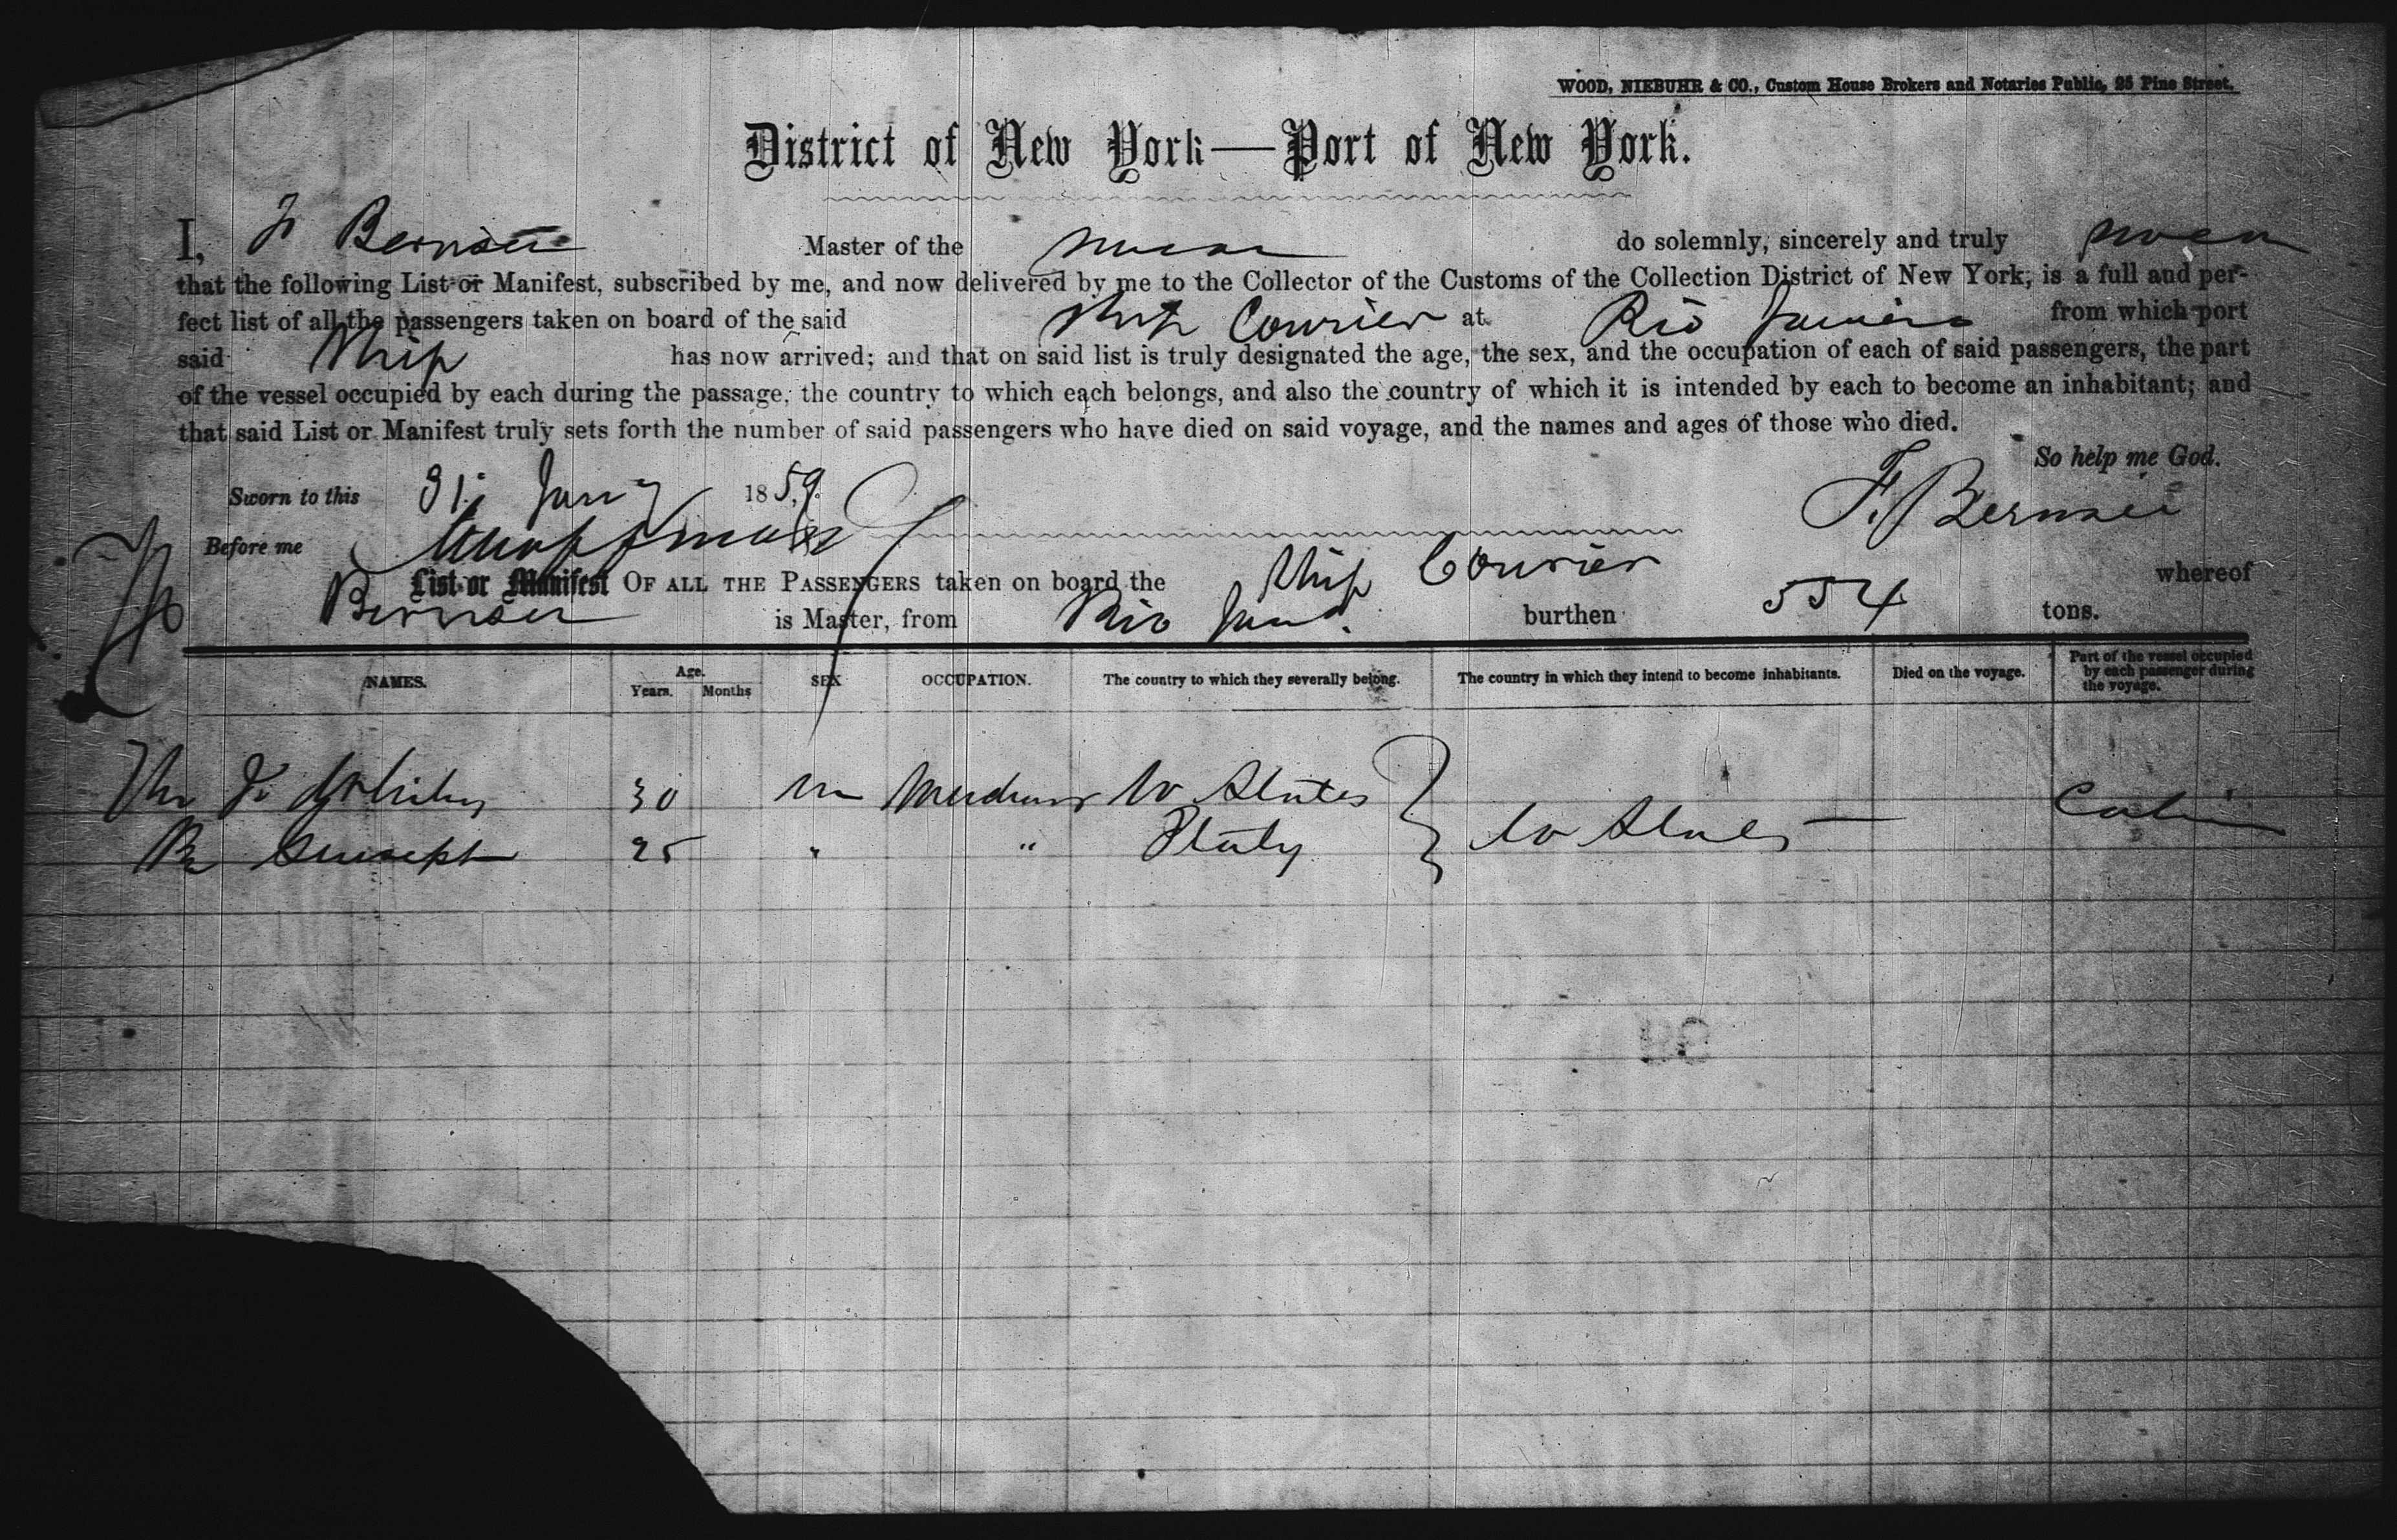 WOOD, NIEBUHR & CO., Custom House Brokers and Notaries Public, 25 Pine Street.
District of New York—Port of New York.
I, Master of the do solemnly, sincerely and truly
that the following List or Manifest, subscribed by me, and now delivered by me to the Collector of the Customs of the Collection District of New York, is a full and per-
fect list of all the passengers taken on board of the said Ship Courier at Rio Janeiro from which port
said Ship has now arrived; and that on said list is truly designated the age, the sex, and the occupation of each of said passengers, the part
of the vessel occupied by each during the passage, the country to which each belongs, and also the country of which it is intended by each to become an inhabitant; and
that said List or Manifest truly sets forth the number of said passengers who have died on said voyage, and the names and ages of those who died.
So help me God.
Sworn to this 31 Jany 1859.
Before me
List or Manifest OF ALL THE PASSENGERS taken on board the Ship Courier whereof
is Master, from Rio burthen 554 tons.
NAMES. Age. Years. Months SEX OCCUPATION. The country to which they severally belong. The country in which they intend to become inhabitants. Died on the voyage. Part of the vessel occupied by each passenger during the voyage.
30 m U States Cabin
25 " " Italy U States